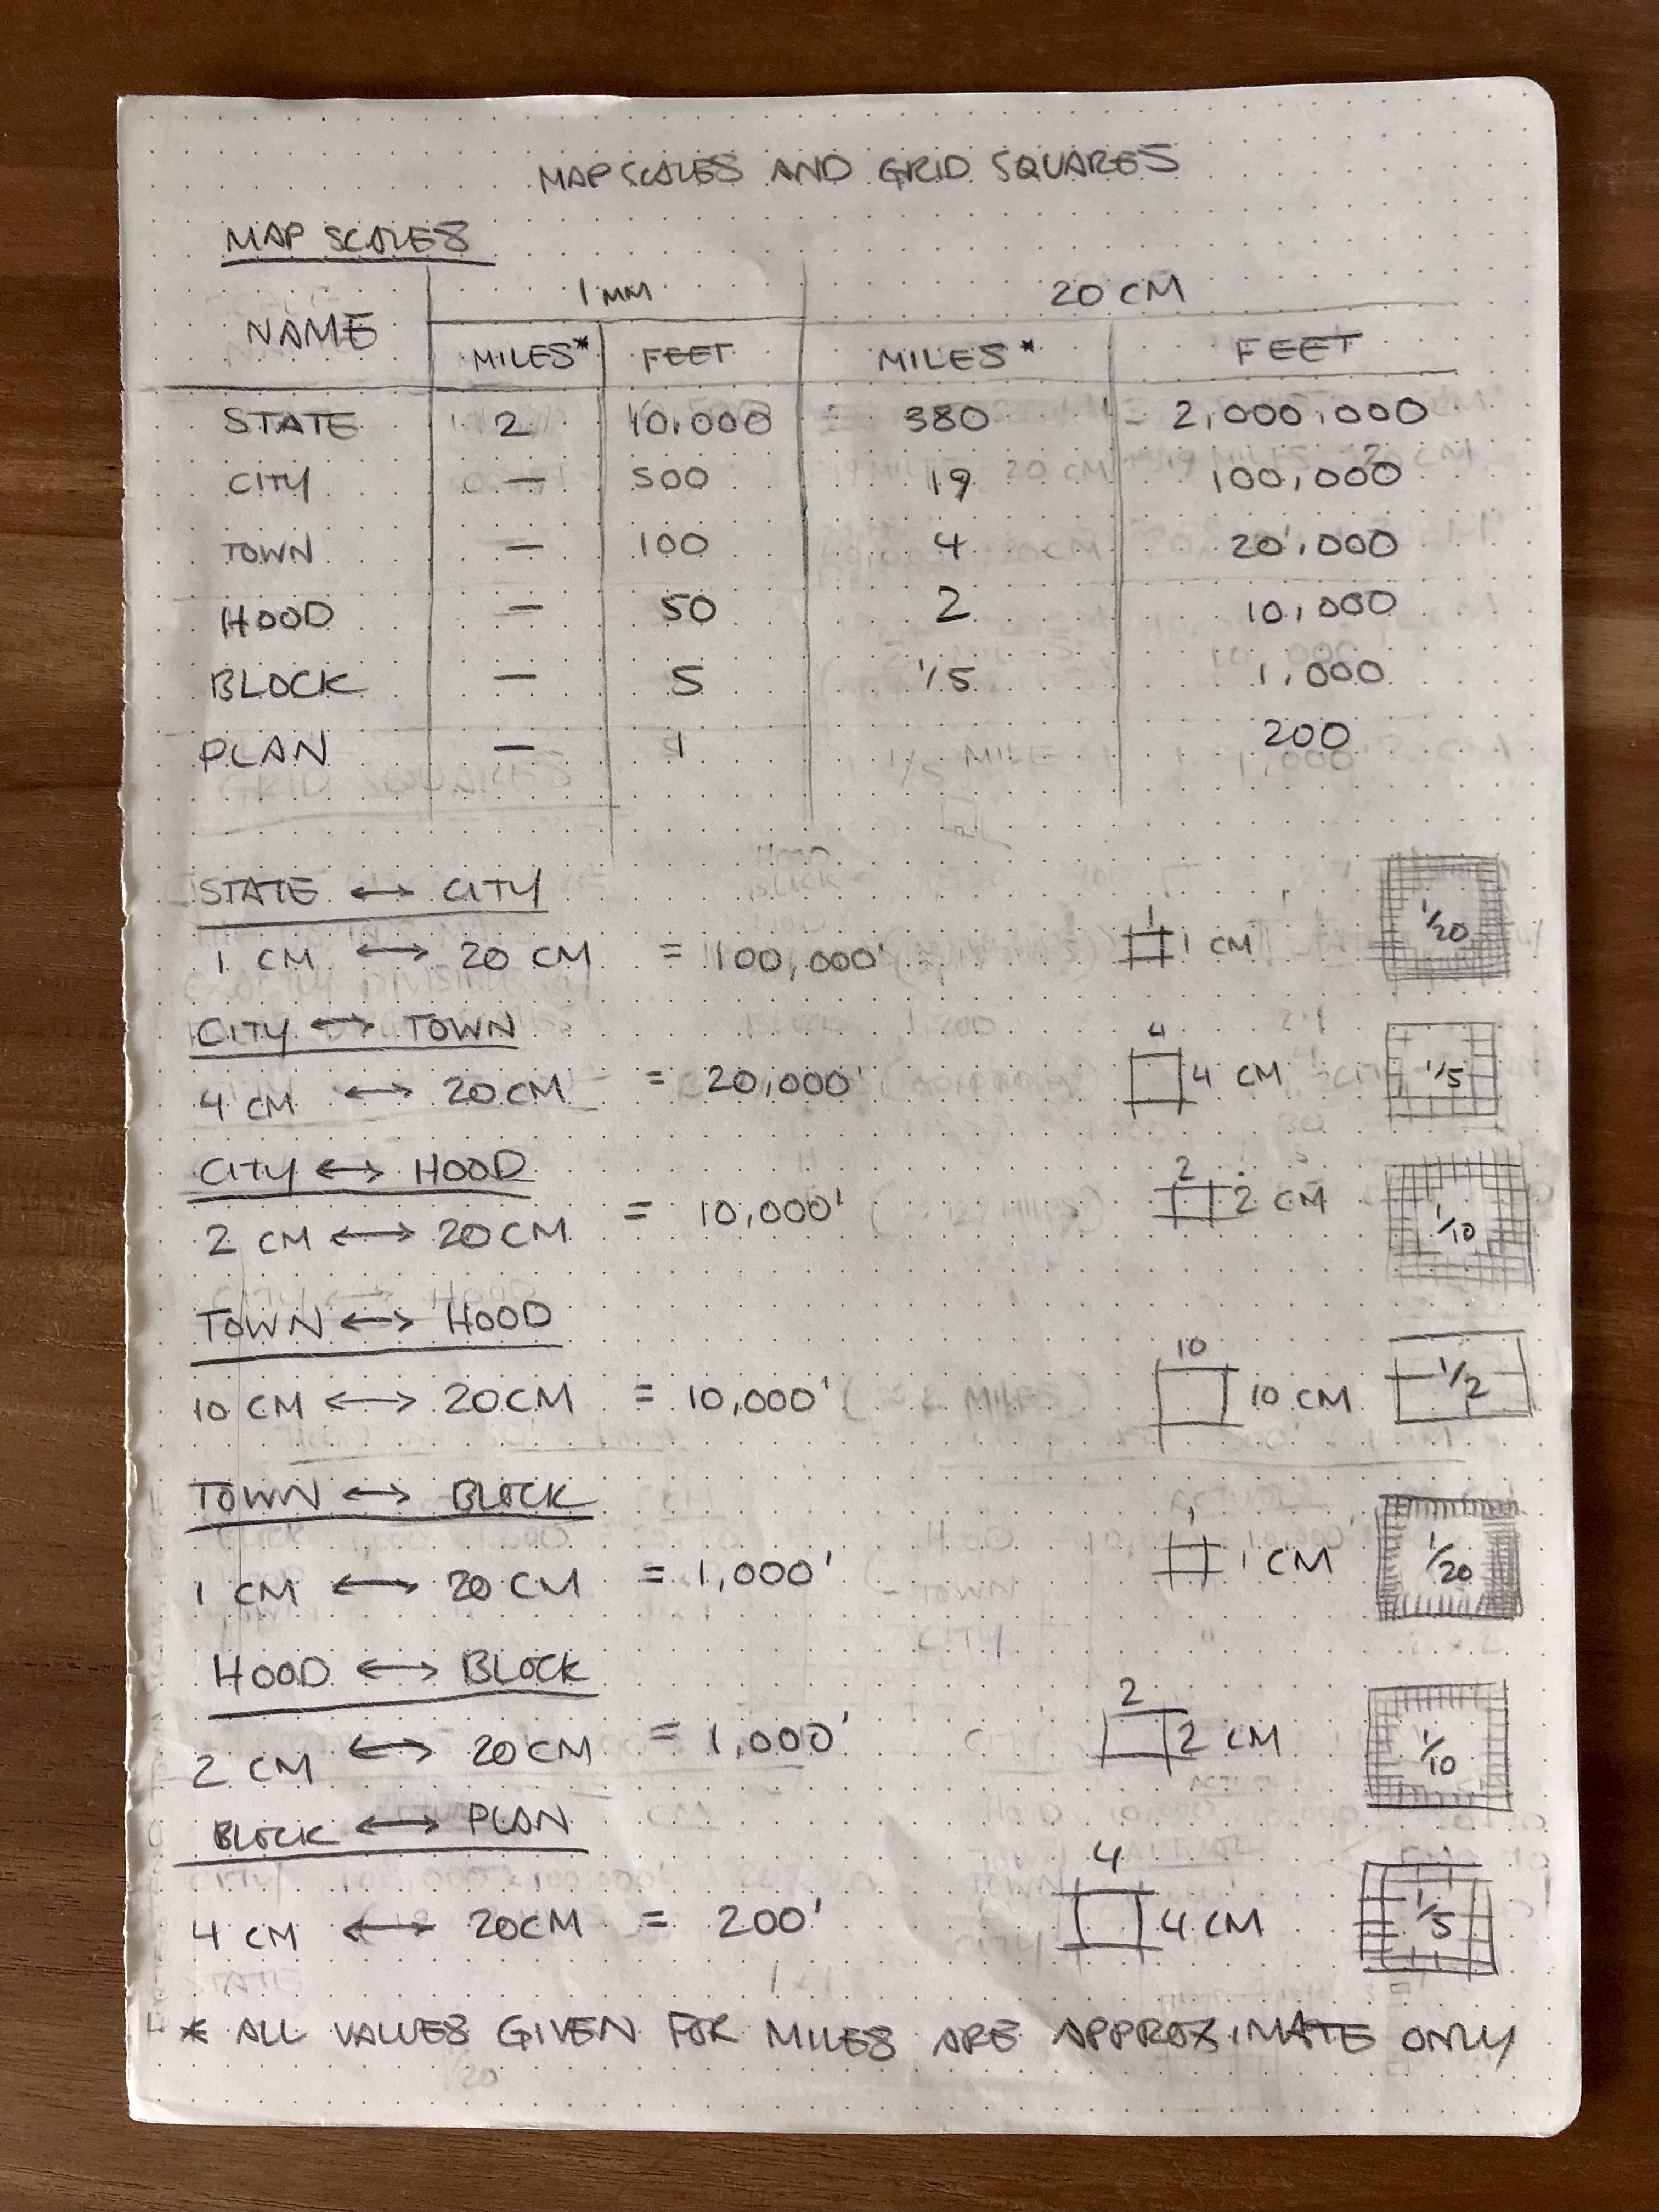 MAP SCALES AND GRID SQUARES
MAP SCALES
NAME 1 MM 20 CM
MILES* FEET MILES* FEET
STATE 2 10,000 380 2,000,000
CITY — 500 19 100,000
TOWN — 100 4 20,000
HOOD — 50 2 10,000
BLOCK — 5 1/5 1,000
PLAN — 1 200
STATE ↔ CITY
1 CM ↔ 20 CM = 100,000' 1 1 CM 1/20
CITY ↔ TOWN
4 CM ↔ 20 CM = 20,000' 4 4 CM 1/5
CITY ↔ HOOD
2 CM ↔ 20 CM = 10,000' 2 2 CM 1/10
TOWN ↔ HOOD
10 CM ↔ 20 CM = 10,000' 10 10 CM 1/2
TOWN ↔ BLOCK
1 CM ↔ 20 CM = 1,000' 1 1 CM 1/20
HOOD ↔ BLOCK
2 CM ↔ 20 CM = 1,000' 2 2 CM 1/10
BLOCK ↔ PLAN
4 CM ↔ 20 CM = 200' 4 4 CM 1/5
* ALL VALUES GIVEN FOR MILES ARE APPROXIMATE ONLY